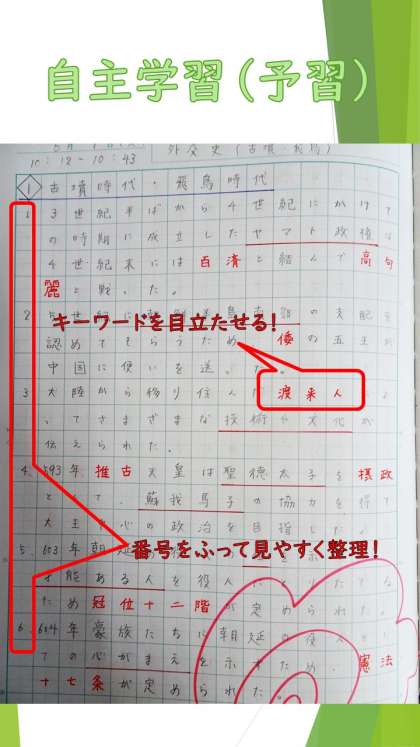 自主学習(予習)
10:12-10:43
外交史(古墳・飛鳥)
1 古墳時代・飛鳥時代
1. 3世紀半ばから4世紀にかけて
の時期に成立したヤマト政権は
4世紀末には百済と結んで高句
麗と戦った。
2
キーワードを目立たせる!
の支配を
認めてもらうため 倭の五王が
中国に使いを送った。
3 大陸から移り住んだ渡来人
てさまざまな技術や文化が
伝えられた。
4. 593年、推古天皇は聖徳太子を摂政
として、蘇我馬子の協力を得て
心の政治を目指した。
番号をふって見やすく整理!
5. 603年
能ある人を役人にとりたてる
ため冠位十二階が定められた。
6. 604年豪族たちに朝廷の役人とし
ての心がまえを示すため、憲法
十七条が定められた。